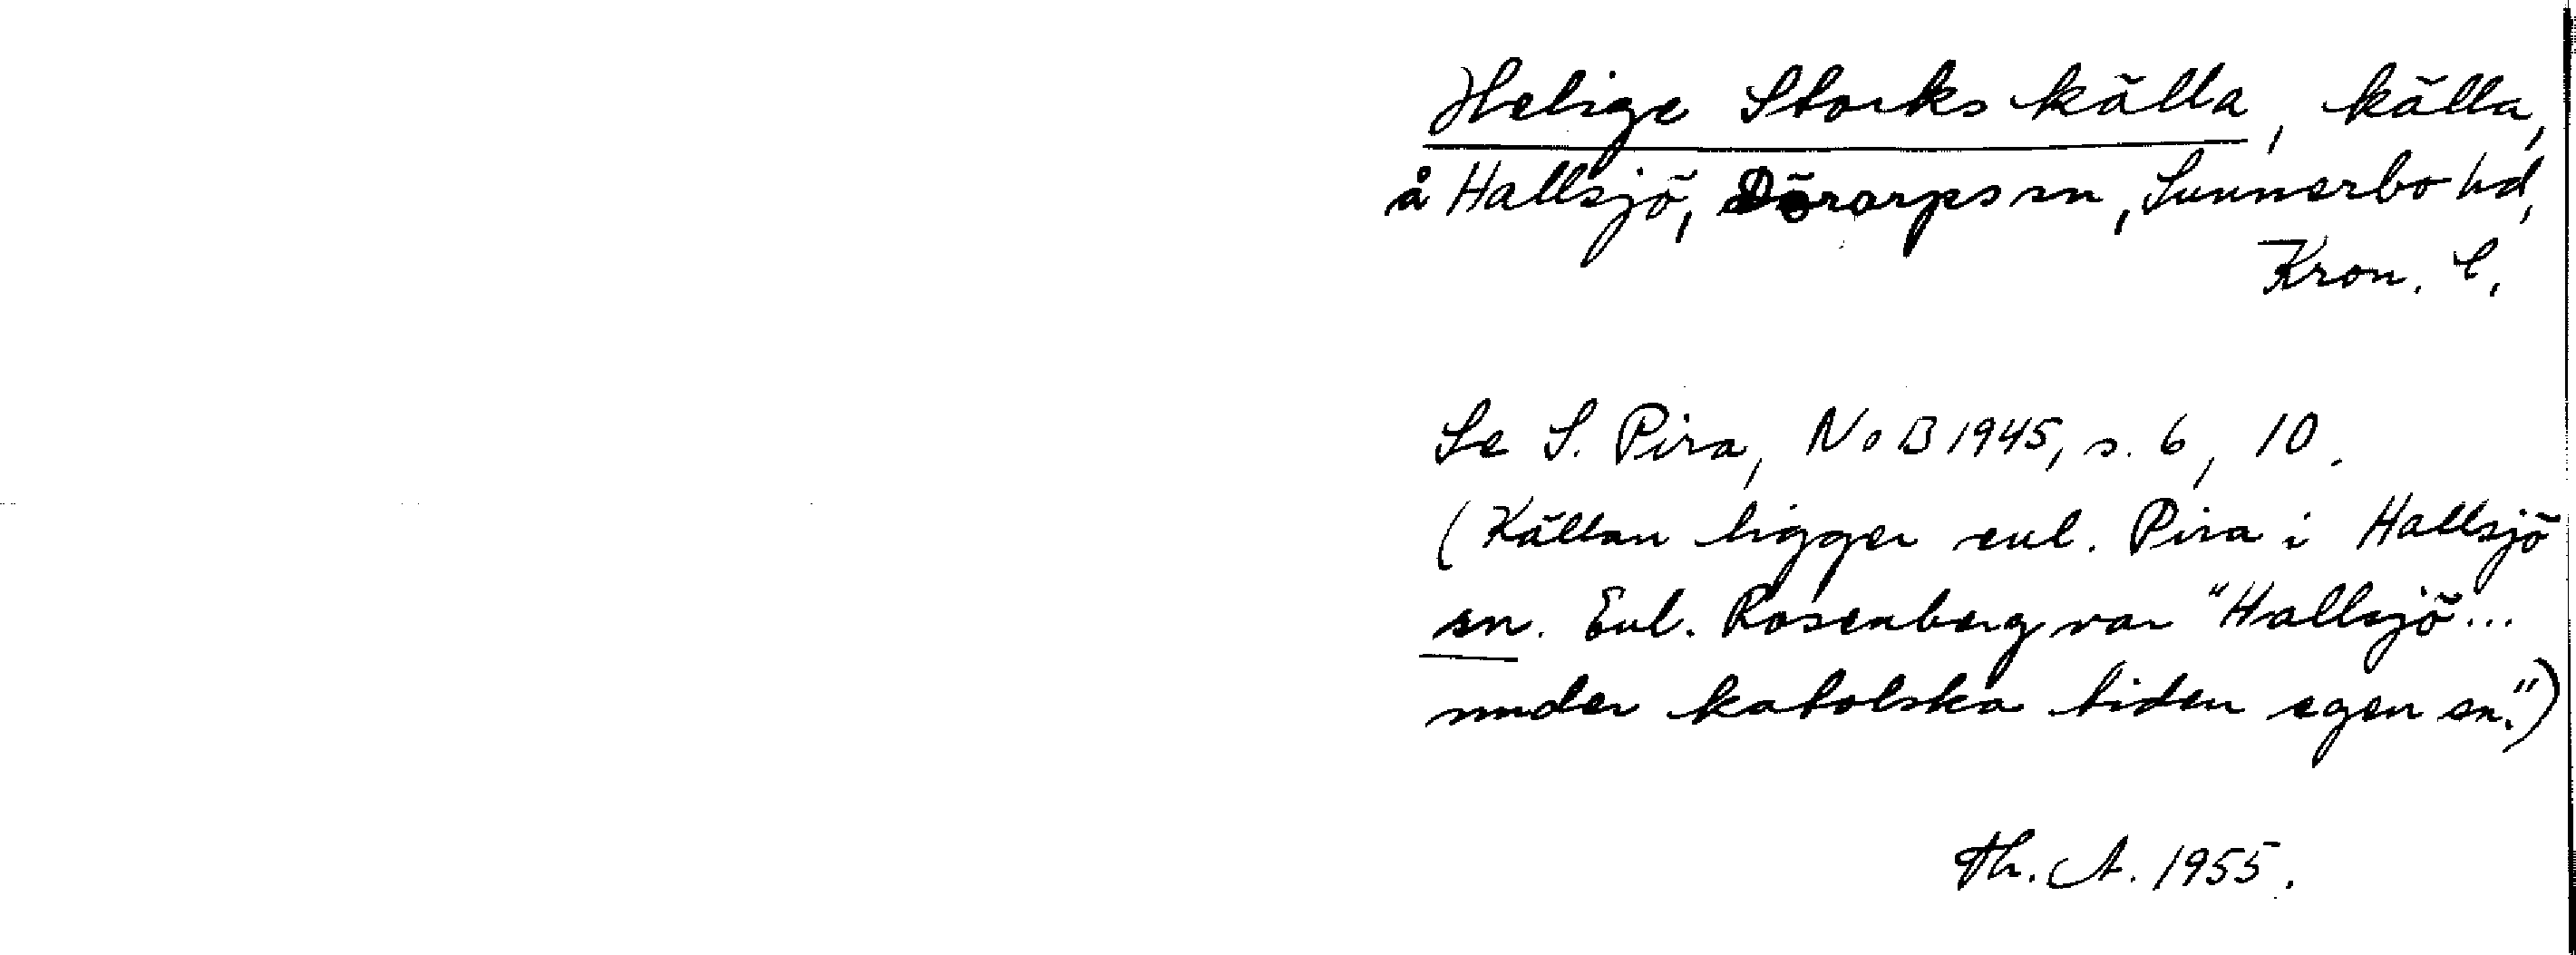 Helige Storks källa, källa,
å Hallsjö, Dörarps sn, Sunnerbo hd,
Kron. l.
Se S. Pira, NoB 1945, s. 6, 10.
(Källan ligger enl. Pira i Hallsjö
sn. Enl. Rosenberg var "Hallsjö...
under katolska tiden egen sn.")
Th. A. 1955.